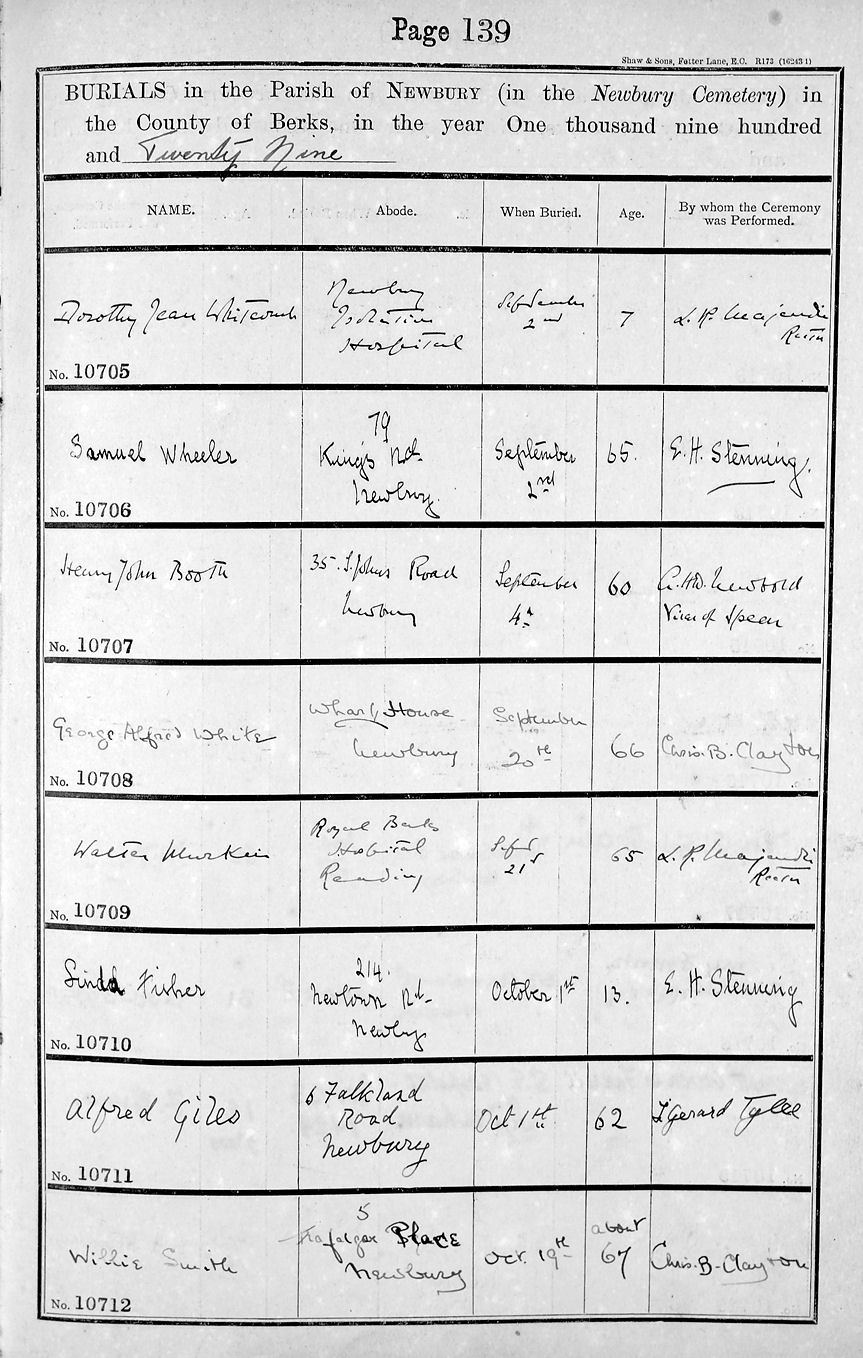 Page 139
Shaw & Sons, Fetter Lane, E.C. R173 (16243 1)
BURIALS in the Parish of NEWBURY (in the Newbury Cemetery) in
the County of Berks, in the year One thousand nine hundred
and Twenty Nine
NAME.
Abode.
When Buried.
Age.
By whom the Ceremony
was Performed.
Dorothy Jean Whitcomb
No. 10705
Newbury
Isolation
Hospital
September
2nd
7
L. R. Majendie
Rector
Samuel Wheeler
No. 10706
79
King's Rd
Newbury.
September
2nd
65.
E. H. Stenning.
Henry John Booth
No. 10707
35. S. Johns Road
Newbury
September
4th
60
Newbold
Vicar of Speen
George Alfred White
No. 10708
Wharf House
Newbury
September
20th
66
Chris. B. Clayton
Walter
No. 10709
Royal Berks
Hospital
Reading
Sept
21st
65
L. R. Majendie
Rector
Linda Fisher
No. 10710
214.
Newtown Rd
Newby
October 1st
13.
E. H. Stenning
Alfred Giles
No. 10711
6 Falkland
Road
Newbury
Oct 1st
62
Gerard Tylee
Willie Smith
No. 10712
5
Trafalgar Place
Newbury
Oct. 19th
about
67
Chris. B. Clayton